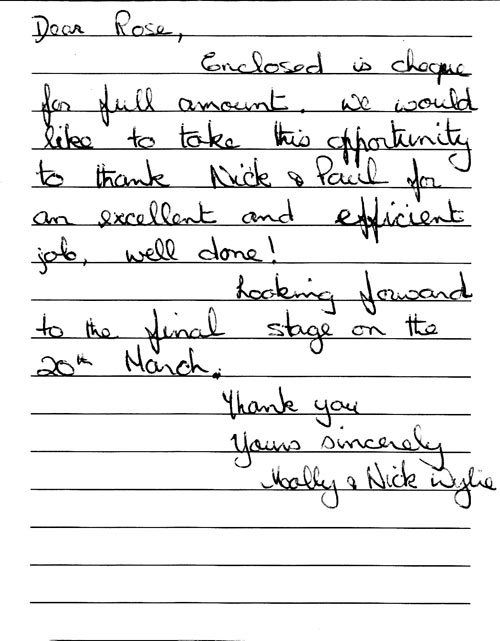 Dear Rose,
Enclosed is cheque
for full amount. We would
like to take this opportunity
to thank Nick & Paul for
an excellent and efficient
job, well done!
Looking forward
to the final stage on the
20th March.
Thank you
Yours sincerely
& Nick Wylie